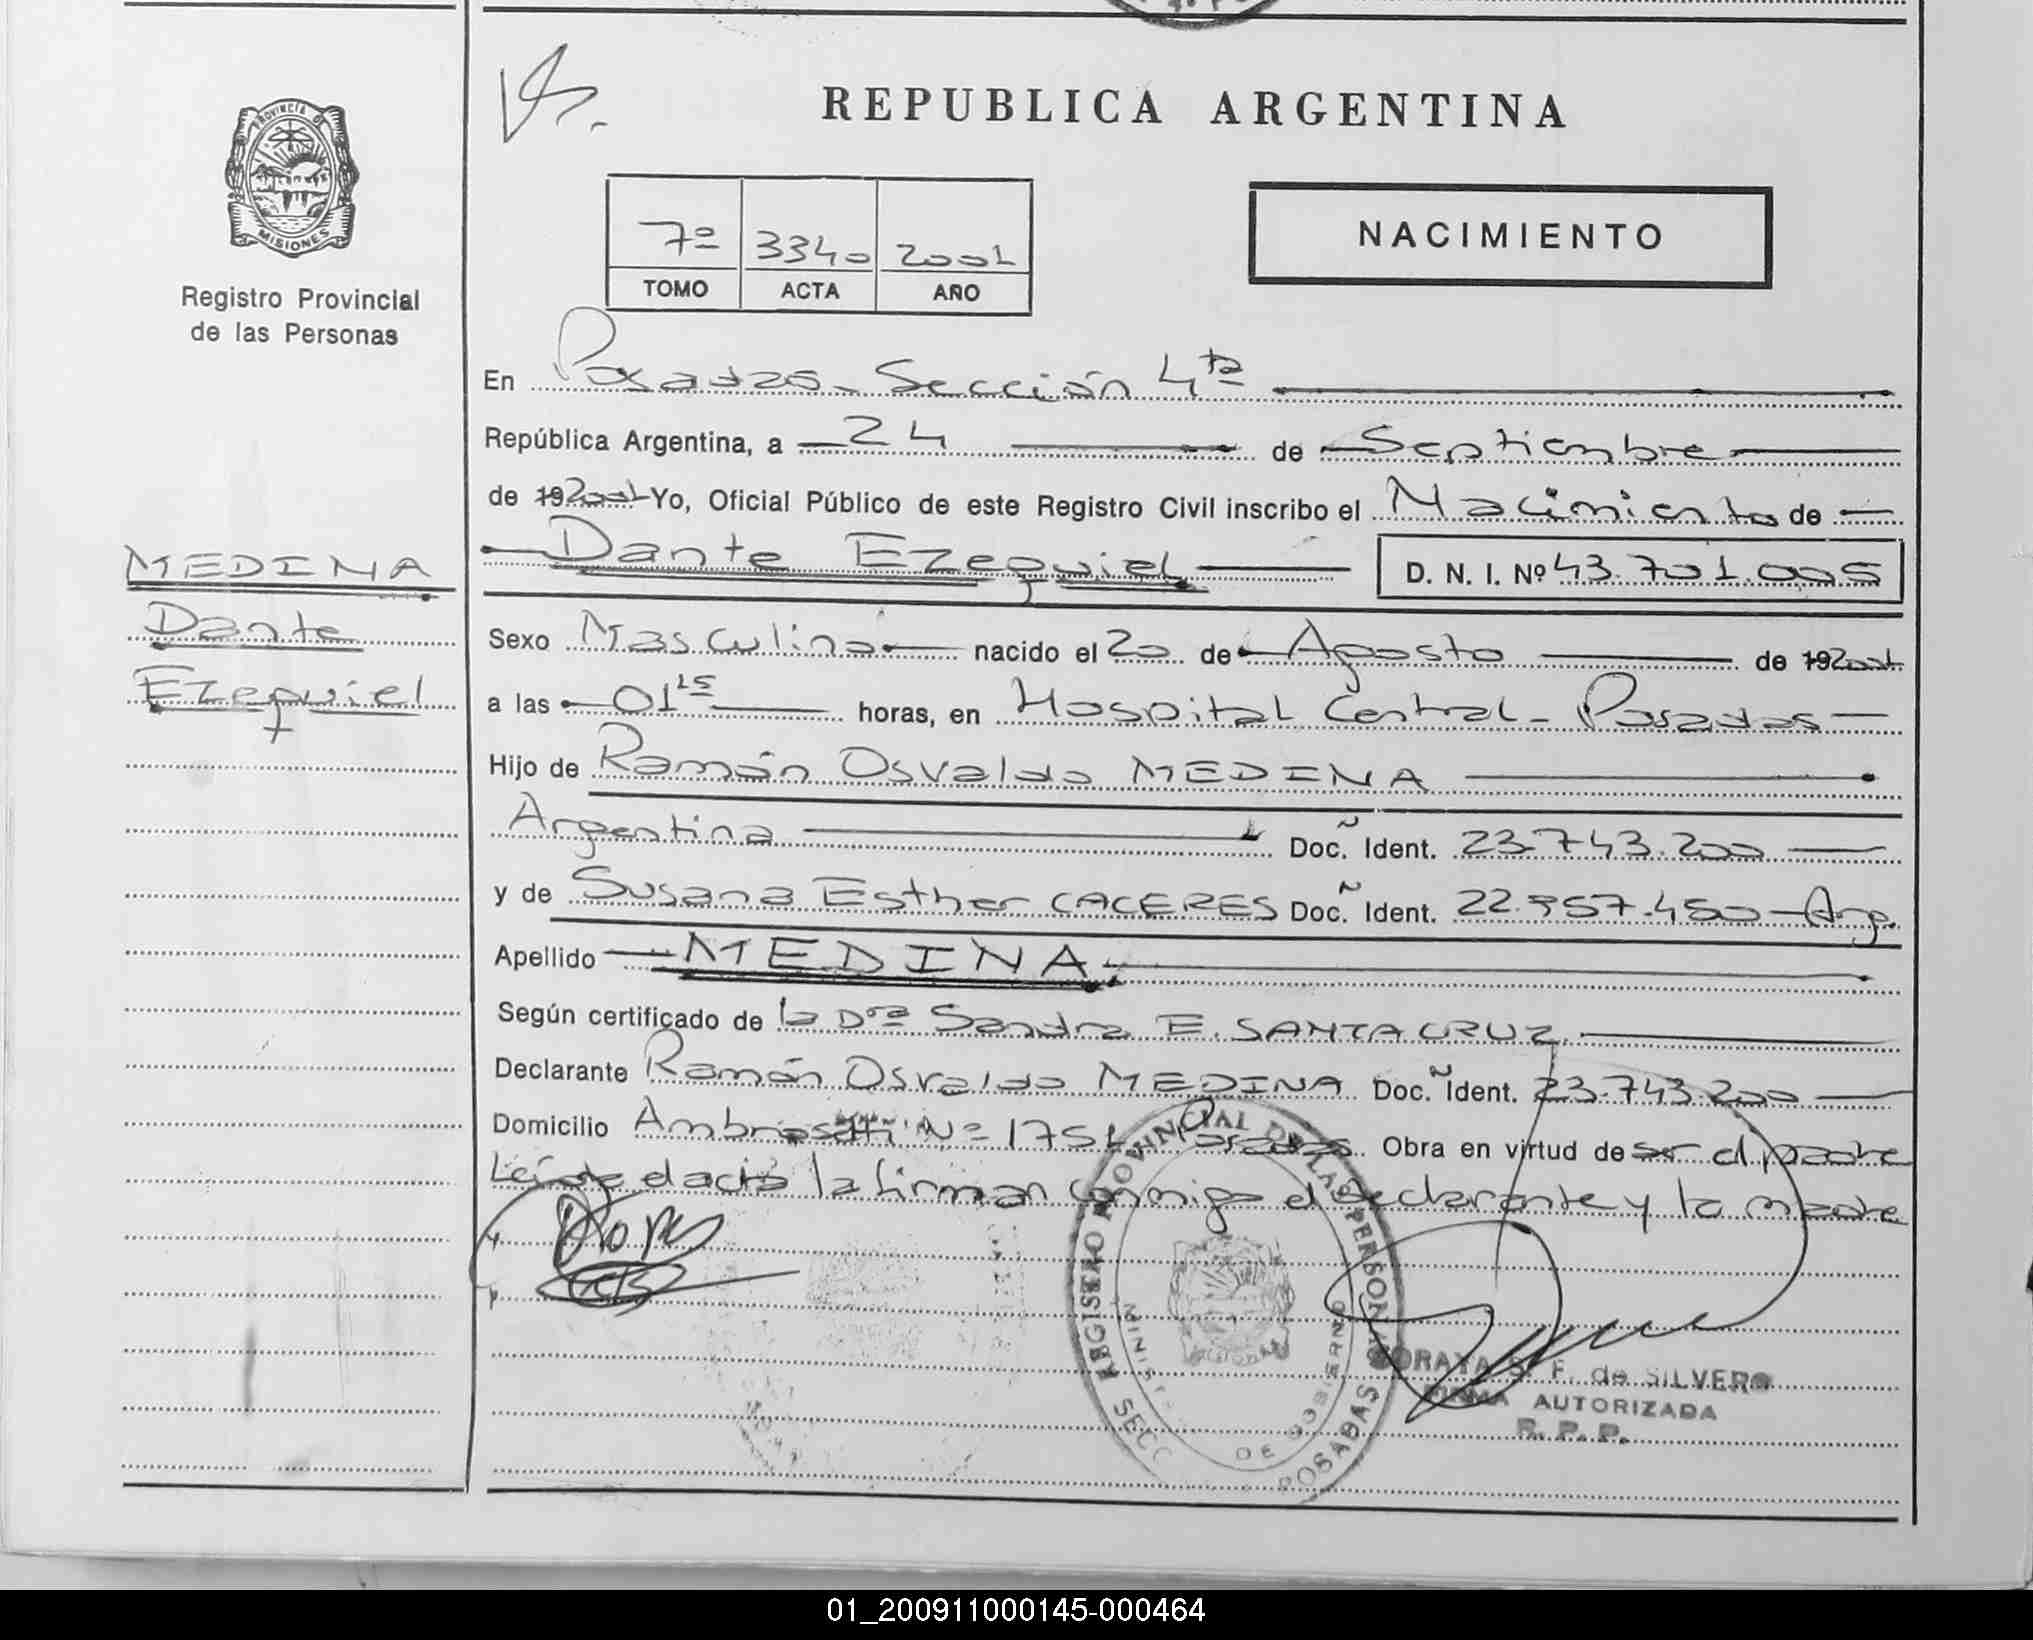 REPUBLICA ARGENTINA
PROVINCIA DE
MISIONES
Registro Provincial
de las Personas
7º 3340 2001
TOMO ACTA AÑO
NACIMIENTO
En Posadas - Sección 4ta
República Argentina, a 24 de Septiembre
de 192001 Yo, Oficial Público de este Registro Civil inscribo el Nacimiento de
Dante Ezequiel D. N. I. Nº 43.701.005
MEDINA
Dante
Ezequiel
Sexo Masculino nacido el 20 de Agosto de 192001
a las 01 15 horas, en Hospital Central - Posadas
Hijo de Ramón Osvaldo MEDINA
Argentina Doc. Ident. 23.743.200
y de Susana Esther CACERES Doc. Ident. Arg.
Apellido MEDINA
Según certificado de la Dra Sandra E. SANTA CRUZ
Declarante Ramón Osvaldo MEDINA Doc. Ident. 23.743.200
Domicilio Nº 1751 Posadas Obra en virtud de ser el padre
Leída el acta la firman conmigo el declarante y la madre
REGISTRO PROVINCIAL DE LAS PERSONAS
MINIST DE GOBIERNO
SECC POSADAS
SORAYA S. F. de SILVERO
FIRMA AUTORIZADA
R. P. P.
01_200911000145-000464